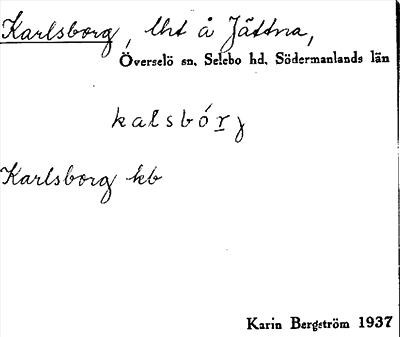 Karlsborg, lht å Jättna,
Överselö sn, Selebo hd, Södermanlands län
kalsbórj
Karlsborg kb
Karin Bergström 1937